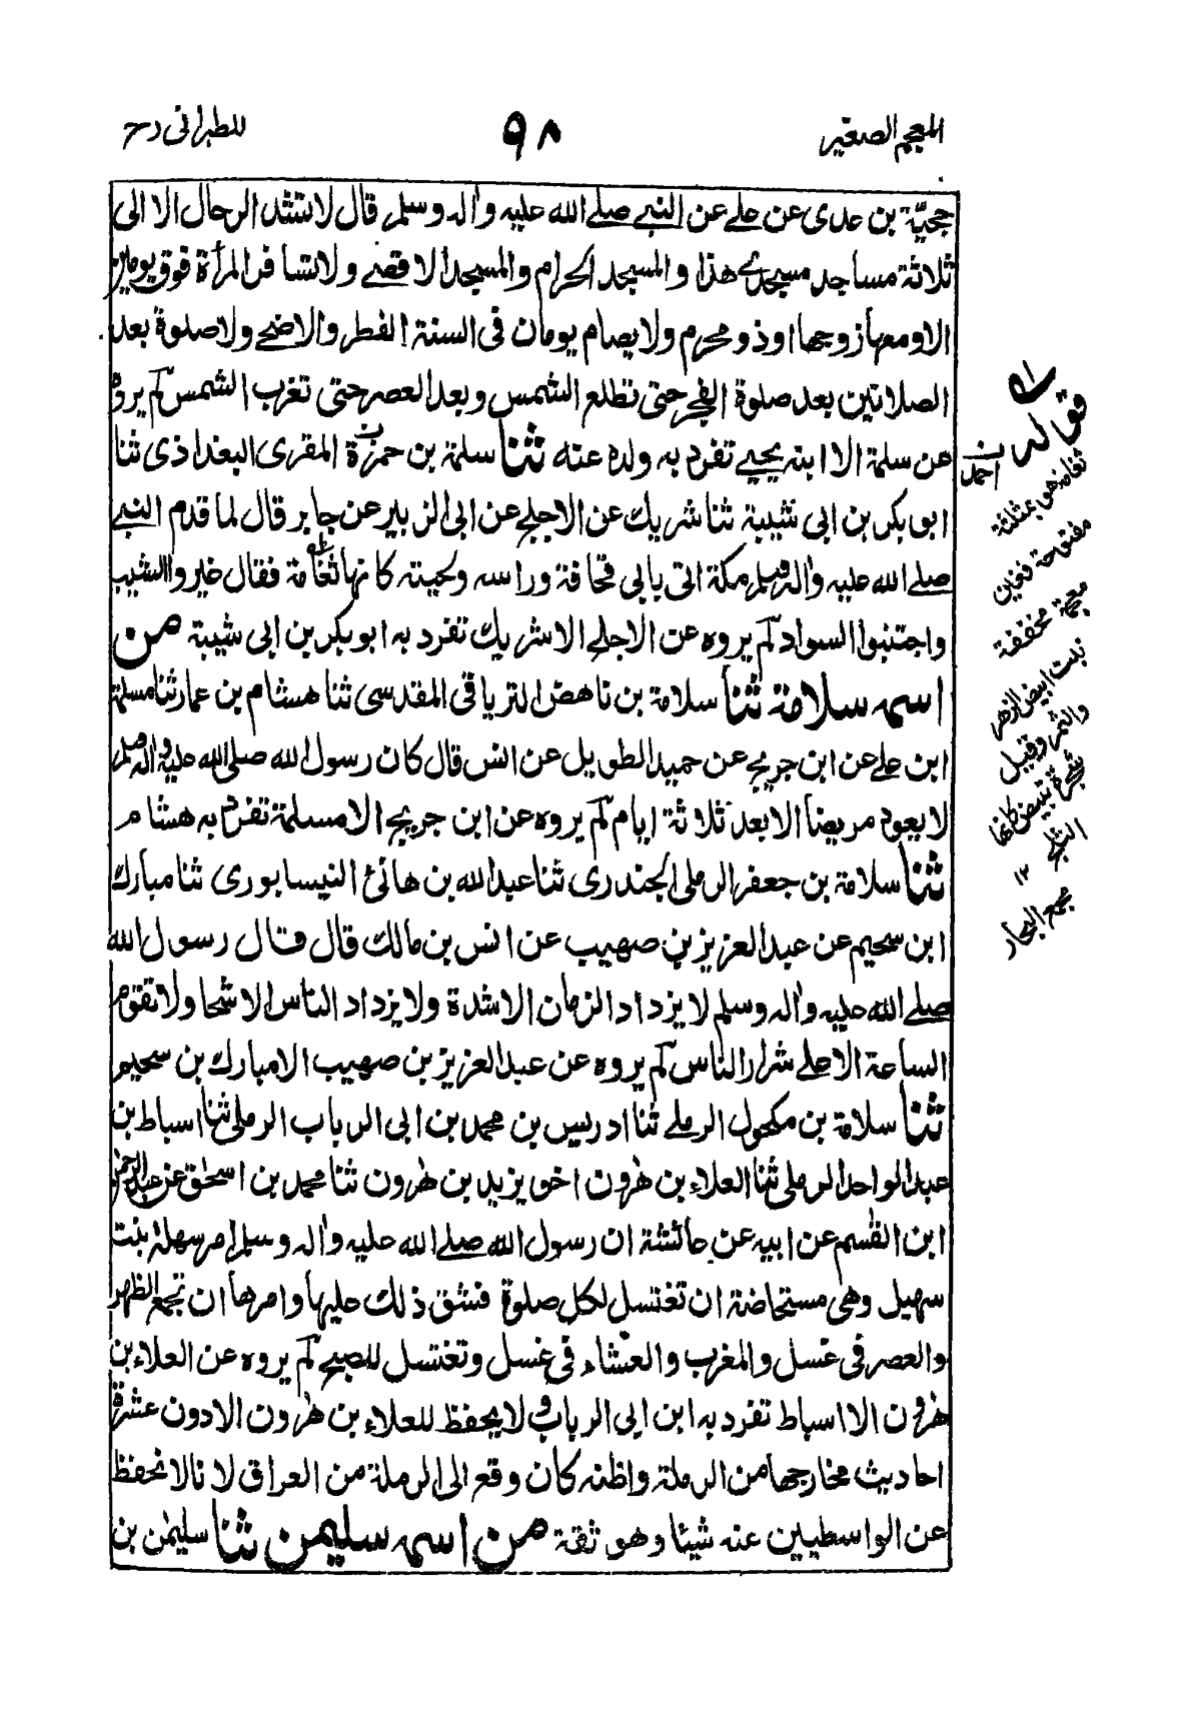 المعجم الصغير
٩٨
للطبرانی رح
حجيّة بن عدی عن علے عن النبے صلے الله عليه واٰله وسلم قال لا تشد الرحال الا الی
ثلاثة مساجد مسجدے هذا والمسجد الحرام والمسجد الاقصے ولا تسافر المرأة فوق يومين
الا ومعها زوجها او ذو محرم ولا يصام يومان فی السنة الفطر والاضحے ولا صلوة بعد
الصلاتين بعد صلوة الفجر حتی تطلع الشمس وبعد العصر حتی تغرب الشمس لم يروه
عن سلمة الا ابنه يحيے تفرد به ولده عنه ثنا سلمة بن حمزة المقری البغداذی ثنا
ابو بكر بن ابی شيبة ثنا شريك عن الاجلح عن ابی الزبير عن جابر قال لما قدم النبے
صلے الله عليه واٰله وسلم مكة اتی بابی قحافة وراسه ولحيته كانها ثغامة فقال غيروا الشيب
واجتنبوا السواد لم يروه عن الاجلح الا شريك تفرد به ابو بكر بن ابی شيبة من
اسمه سلامة ثنا سلامة بن ناهض الترياقی المقدسی ثنا هشام بن عمار ثنا مسلمة
ابن علے عن ابن جريج عن حميد الطويل عن انس قال كان رسول الله صلی الله عليه واٰله وسلم
لا يعود مريضا الا بعد ثلاثة ايام لم يروه عن ابن جريج الا مسلمة تفرد به هشام
ثنا سلامة بن جعفر الرملی الجندری ثنا عبد الله بن هانئ النيسابوری ثنا مبارك
ابن سحيم عن عبد العزيز بن صهيب عن انس بن مالك قال قال رسول الله
صلے الله عليه واٰله وسلم لا يزداد الزمان الا شدة ولا يزداد الناس الا شحا ولا تقوم
الساعة الا علے شرار الناس لم يروه عن عبد العزيز بن صهيب الا مبارك بن سحيم
ثنا سلامة بن مكحول الرملے ثنا ادريس بن محمد بن ابی الرباب الرملی ثنا اسباط بن
عبد الواحد الرملی ثنا العلاء بن هٰرون اخو يزيد بن هٰرون ثنا محمد بن اسحٰق عن عبد الرحمٰن
ابن القٰسم عن ابيه عن عائشة ان رسول الله صلے الله عليه واٰله وسلم امر سهلة بنت
سهيل وهی مستحاضة ان تغتسل لكل صلوة فشق ذلك عليها وامرها ان تجمع الظهر
والعصر فی غسل والمغرب والعشاء فی غسل وتغتسل للصبح لم يروه عن العلاء بن
هٰرون الا اسباط تفرد به ابن ابی الرباب ولا يحفظ للعلاء بن هٰرون الا دون عشرة
احاديث مخارجها من الرملة واظنه كان وقع الی الرملة من العراق لانا لا نحفظ
عن الواسطيين عنه شيئا وهو ثقة من اسمه سليمٰن ثنا سليمٰن بن
ن احمد
قوله
ثغامة هی بمثلثة
مفتوحة فغين
معجمة مخففة
نبت ابيض الزهر
والثمر وقيل
شجرة تبيض كانها
الثلج
١٢
مجمع البحار